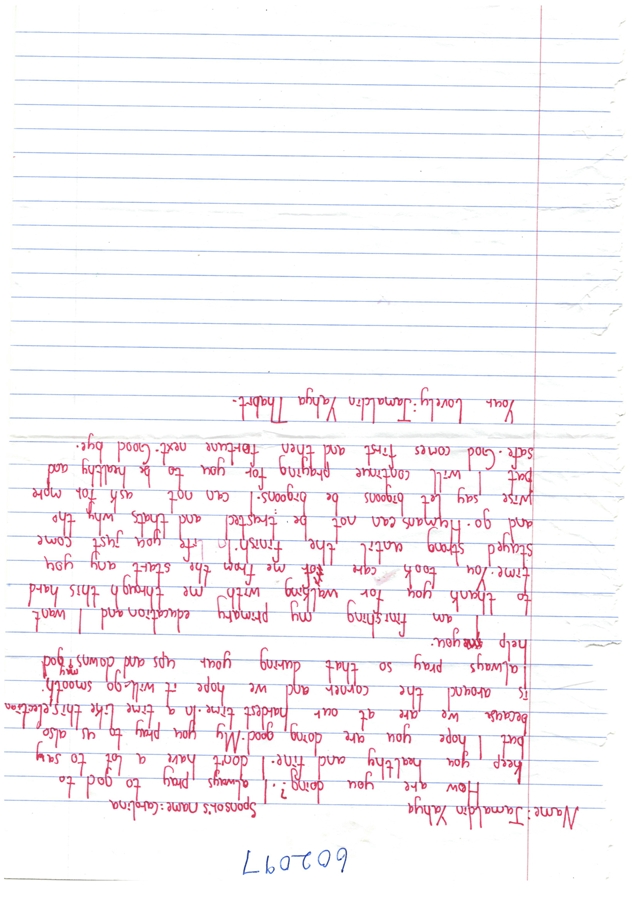 602097
Name: Jamaldin Yahya Sponsor's name: Carolina
How are you doing?. I always pray to god to
keep you healthy and fine. I don't have a lot to say
but I hope you are doing good. My you pray to us also
because we are at our hardest time. in a time like this, election
is around the corner and we hope it will go smooth.
I always pray so that during your ups and downs, may god
help you.
I am finishing my primary education and I want
to thank you for walking with me through this hard
time. You took care of me from the start any you
stayed strong until the finish. In life you just come
and go. Humans can not be trusted and thats why the
wise say let bigoons be bigoons. I can not ask for more
but I will continue praying for you to be healthy and
safe. God comes first and then fortune next. Good bye.
Your Lovely: Jamaldin Yahya Thabit.